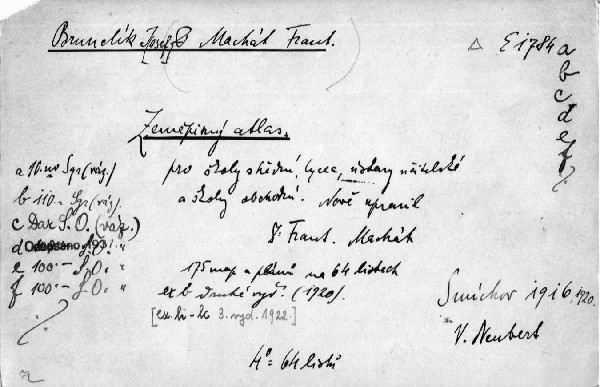 Brunclík Josef & Machát Frant.
E 1784 a
b
c
d
e
f
Zeměpisný atlas.
pro školy střední, lycea, ústavy učitelské
a školy obchodní. Nově upravil
Dr Frant. Machát
175 map a plánů na 64 listech
ex b Druhé vyd. (1920).
3. vyd. 1922.]
4° 64 listů
a (váz.)
b 110.-
c Dar S. O. (váz.)
d S.O. "
e 100.- S.O. "
f 100.- S.O. "
Smíchov 1916, 1920.
V. Neubert